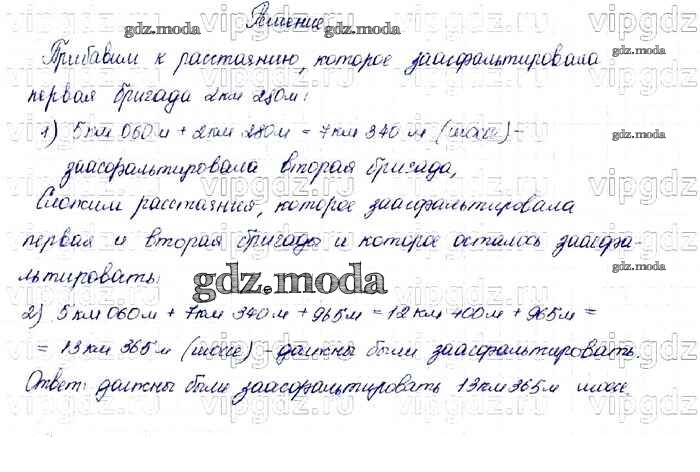 Решение
Прибавим к расстоянию, которое заасфальтировала
первая бригада 2км 280м:
1) 5км 060м + 2км 280м = 7км 340 м (шоссе) -
заасфальтировала вторая бригада,
Сложим расстояния, которое заасфальтировала
первая и вторая бригады и которое осталось заасфа-
льтировать:
2) 5км 060м + 7км 340м + 965м = 12км 400м + 965м =
= 13км 365м (шоссе) - должны были заасфальтировать.
Ответ: должны были заасфальтировать 13км 365м шоссе.
gdz.moda
gdz.moda
gdz.moda
gdz.moda
gdz.moda
gdz.moda
gdz.moda
vipgdz.ru